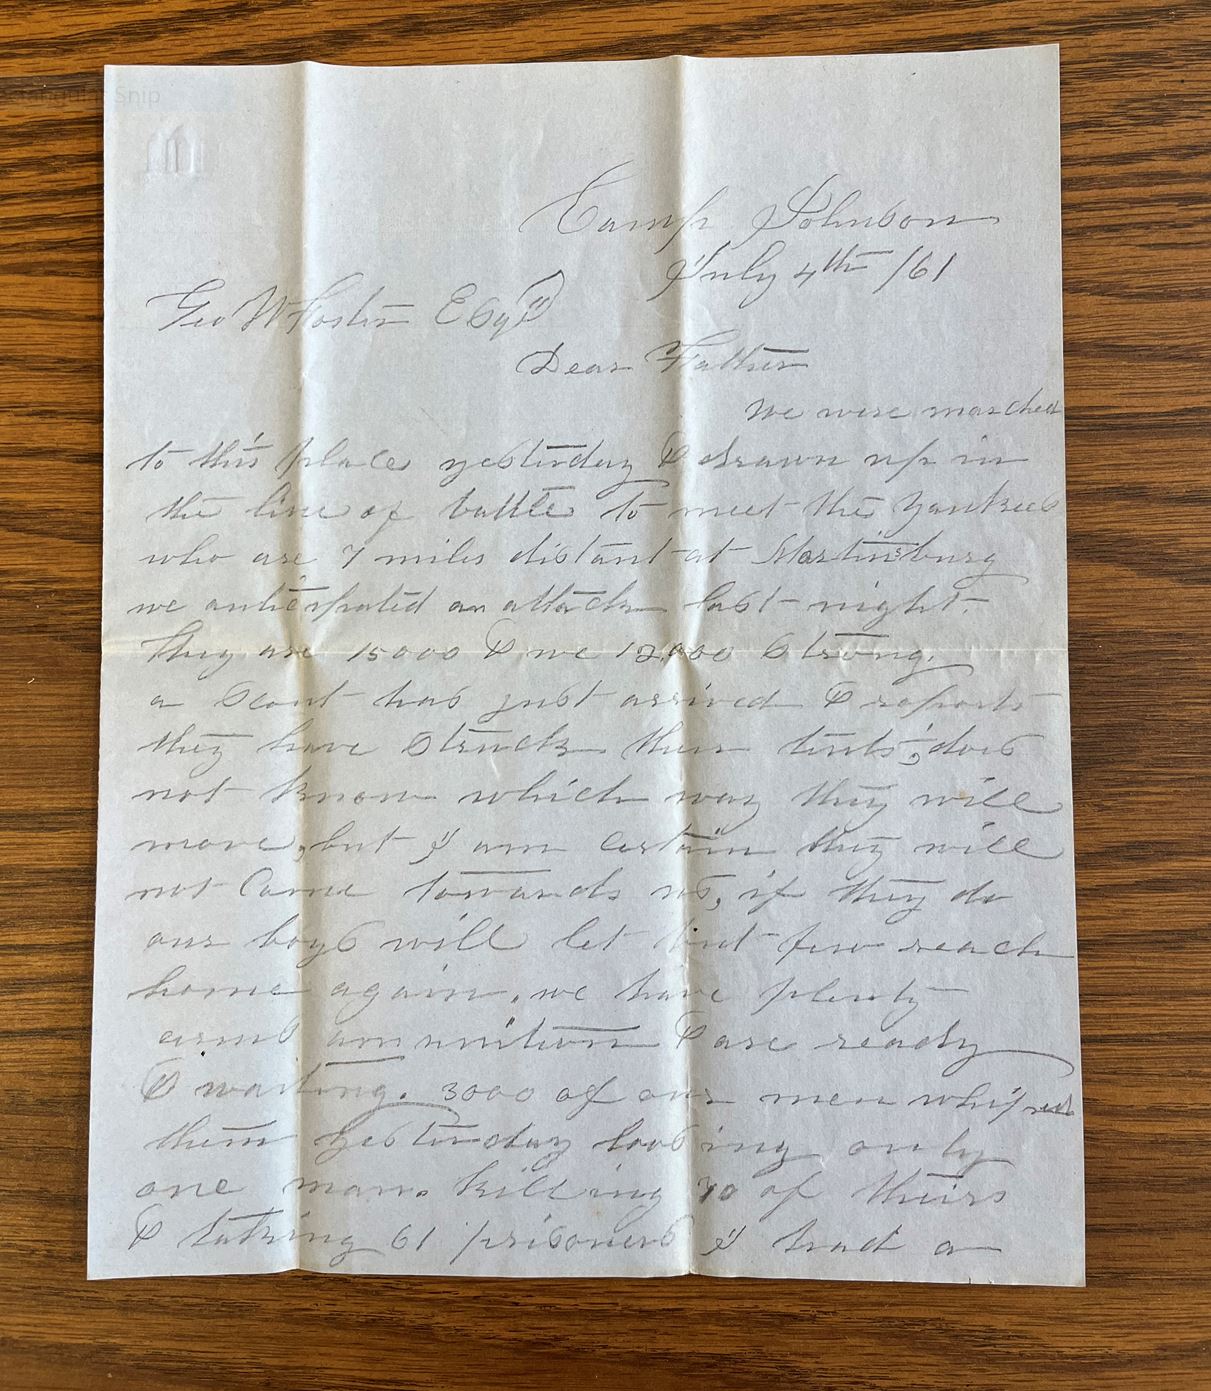 Snip
Camp Johnson
July 4th /61
Geo W Foster Esqr
Dear Father
We were marched
to this place yesterday & drawn up in
the line of battle to meet the Yankees
who are 7 miles distant at Martinsburg
we anticipated an attack last night.
they are 15000 & we 12,000 strong.
a scout has just arrived & reports
they have struck their tents, does
not know which way they will
move, but I am certain they will
not come towards us, if they do
our boys will let but few reach
home again, we have plenty
arms ammunition & are ready
& waiting. 3000 of our men whipped
them yesterday loosing only
one man. killing 70 of theirs
& taking 61 prisoners I had a